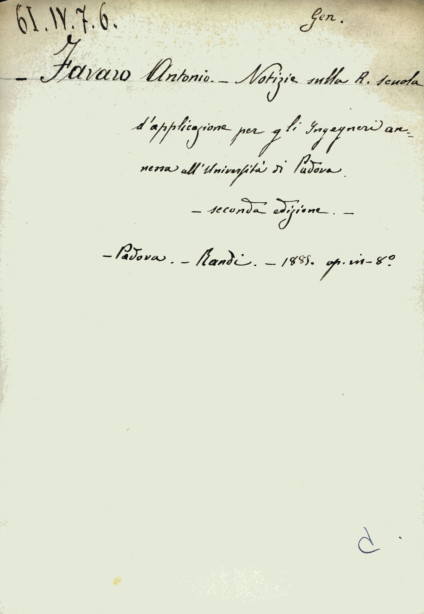 61.IV.7.6.
Gen.
- Favaro Antonio. - Notizie sulla R. scuola
d'applicazione per gli Ingegneri an=
nessa all'Università di Padova.
- seconda edizione. -
- Padova. - Randi. - op. in-8°